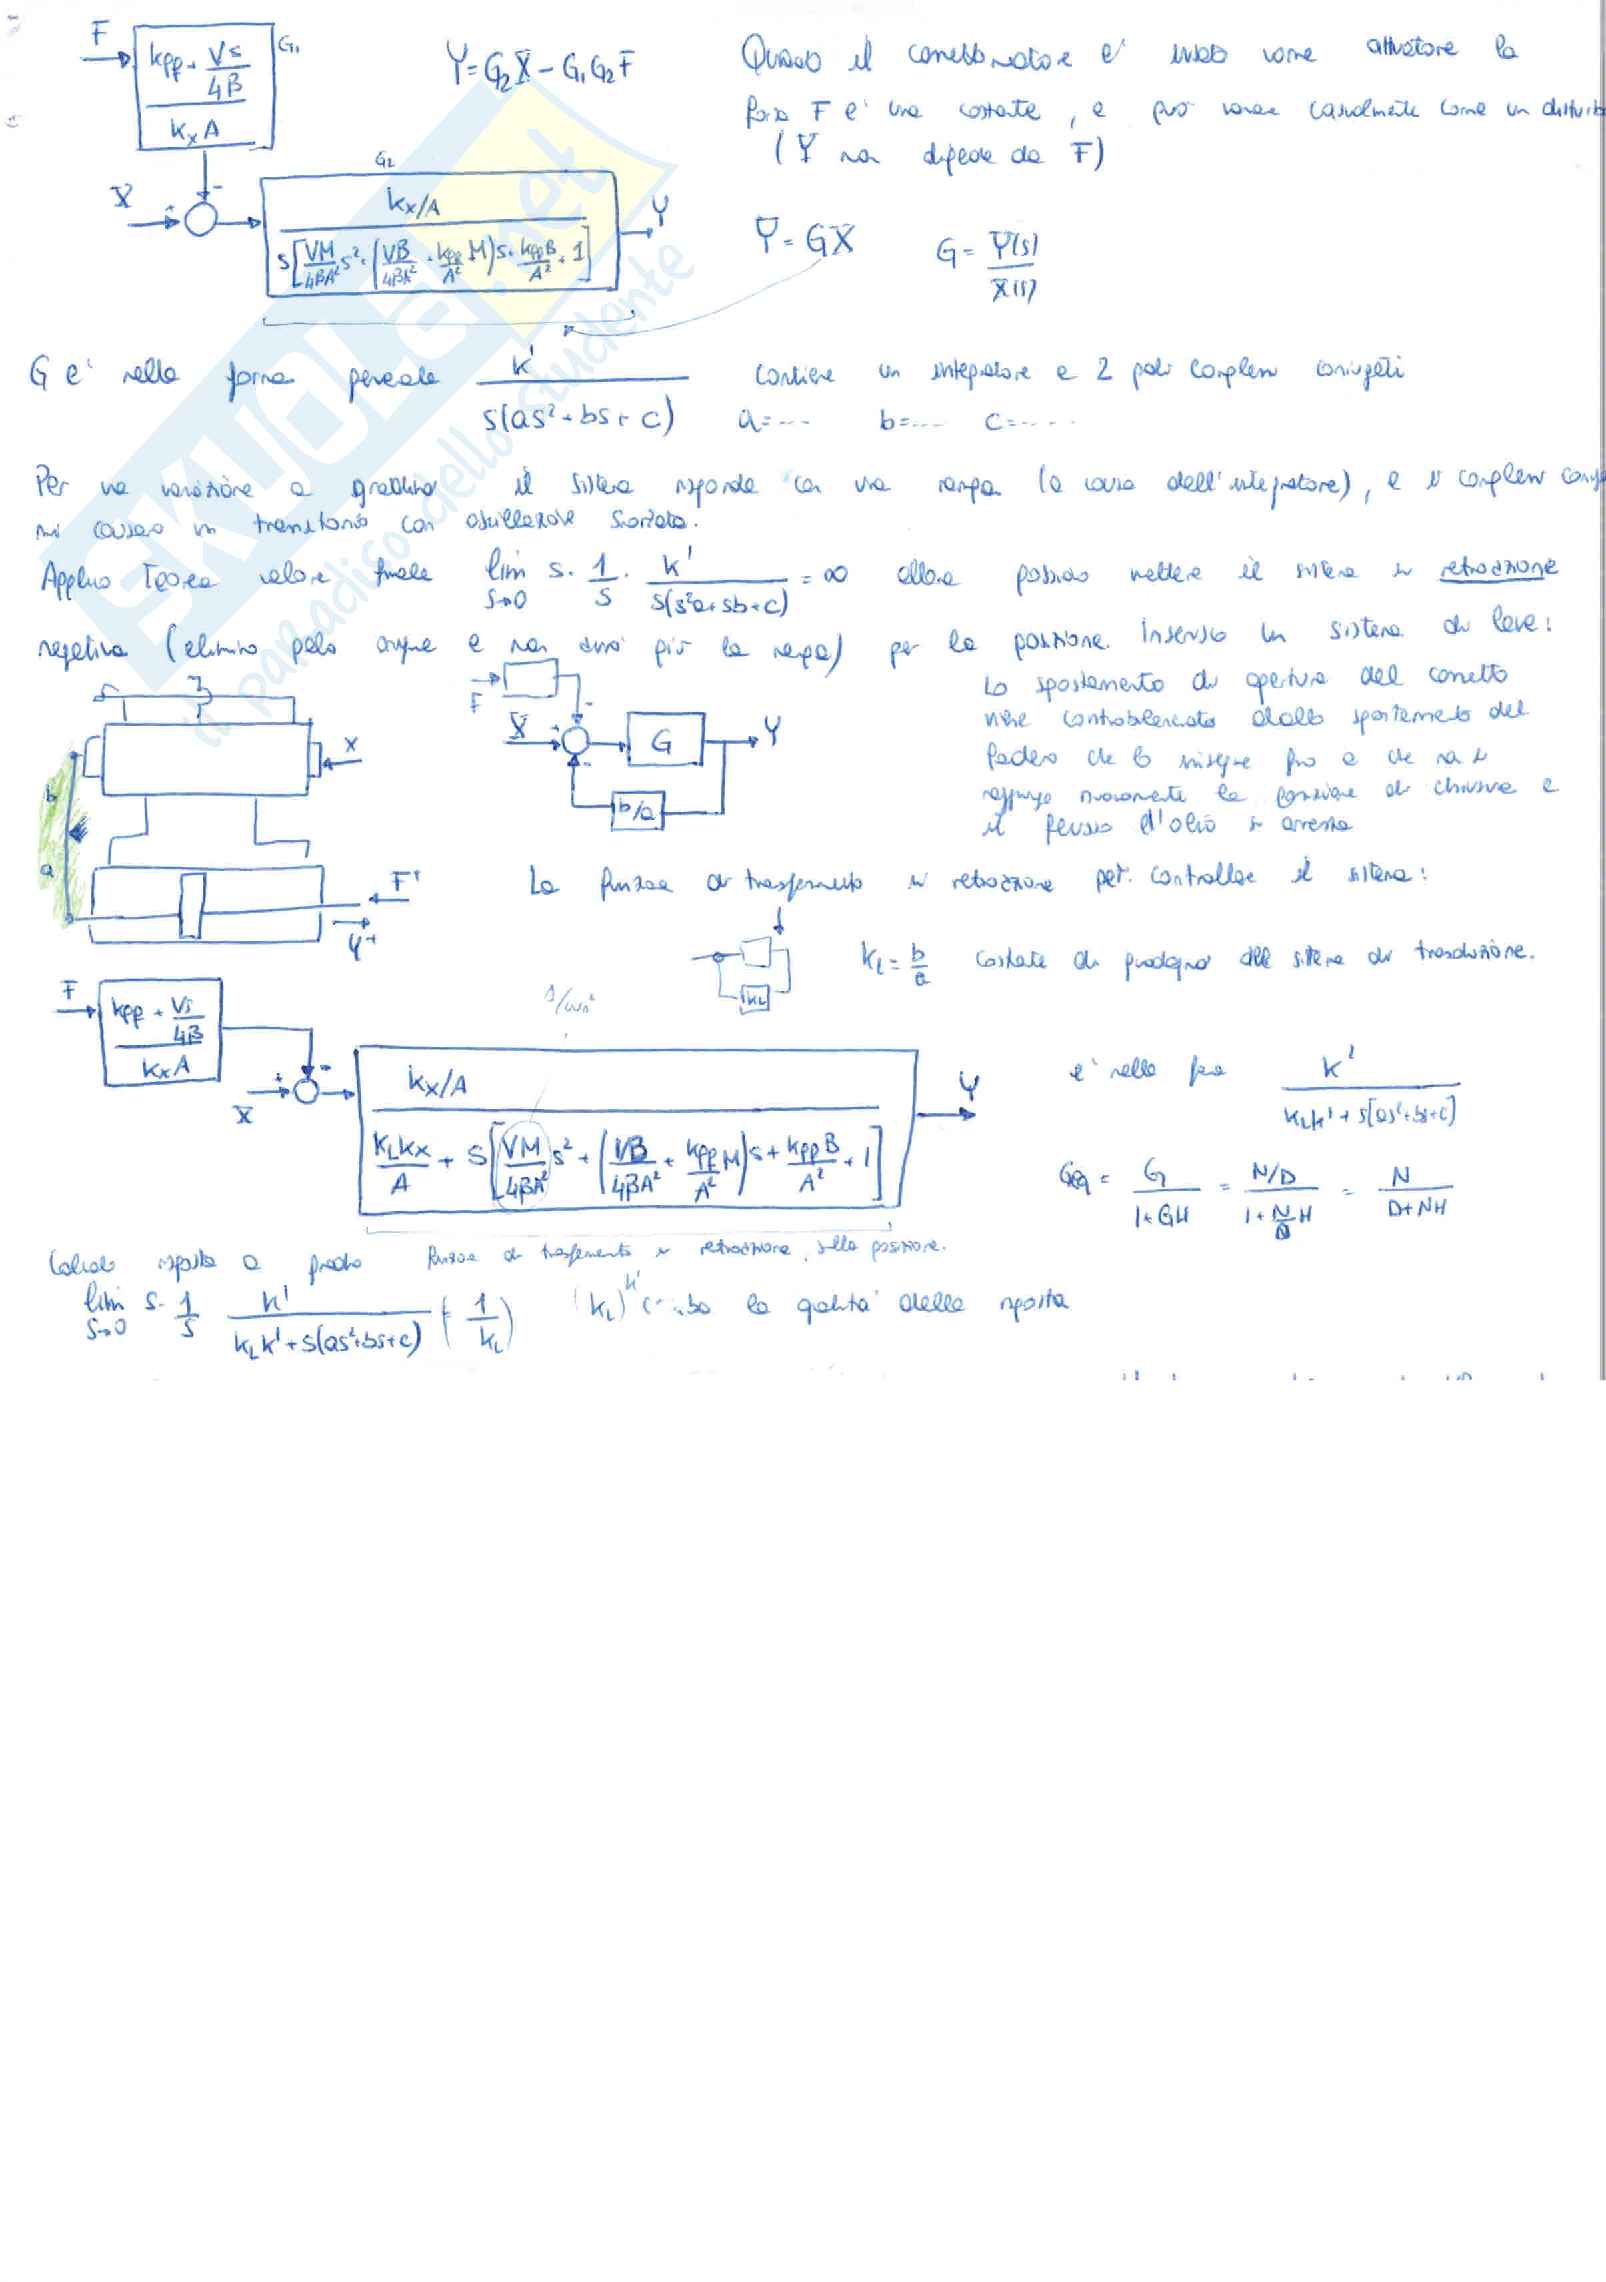 F
kpp + Vs/4β
kx A
G1
Y = G2 X - G1 G2 F
Quando il comesbinatore e' usato come attuatore la
forza F e' una costante, e può variare casualmente come un disturbo
(Y non dipende da F)
X
+
-
G2
kx/A
s[VM/4βA² s² + (VB/4βA² + kpp/A² M)s + kpp B/A² + 1]
Y
Y = GX
G = Y(s)/X(s)
G e' nella forma generale k'/s(as² + bs + c) contiene un integratore e 2 poli complessi coniugati
a=.... b=.... c=.....
Per una variazione a gradino il sistema risponde con una rampa (a causa dell'integratore), e i complessi
mi causano un transitorio con oscillazione smorzata.
Applico Teorema valore finale lim s→0 s · 1/s · k'/s(s²a+sb+c) = ∞ allora possiamo mettere il sistema in retroazione
negativa (elimino polo origine e non avrò più la rampa) per la posizione. Inserisco un sistema di leve:
Lo spostamento di apertura del cassetto
viene controbilanciato dallo spostamento del
che lo insegue fino a che non si
raggiunge nuovamente la posizione di chiusura e
il flusso d'olio si arresta
F
X
+
-
-
G
Y
b/a
X
b
a
F+
Y+
La funzione di trasferimento in retroazione per controllare il sistema:
kL
kL = b/a costante di guadagno del sistema di trasduzione.
F
kpp + Vs/4β
kx A
X
+
-
1/ωn²
kx/A
kL kx/A + s[VM/4βA² s² + (VB/4βA² + kpp/A² M)s + kpp B/A² + 1]
Y
e' nella forma k'/kL k' + s(as²+bs+c)
Geq = G/1+GH = N/D/1+N/D H = N/D+NH
Funzione di trasferimento in retroazione sulla posizione.
Calcolo risposta a gradino
lim s→0 s · 1/s k'/kL k' + s(as²+bs+c) = 1/kL
(kL) k' la qualità della risposta
SKUOLA.net
il paradiso dello studente